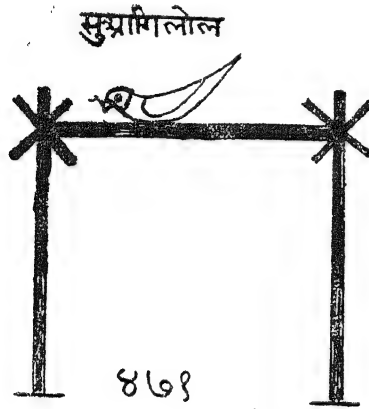 सुग्रागिलोल
४७१